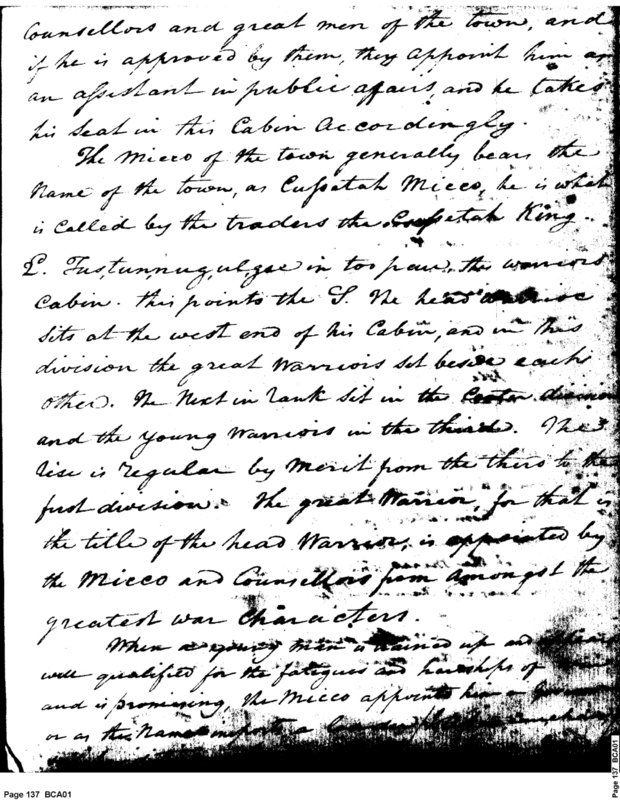 Counsellors and great men of the town, and
if he is approved by them, they appoint him as
an assistant in public affairs, and he takes
his seat in this Cabin Accordingly.
The Micco of the town generally bears the
Name of the town, as Cussetah Micco, he is what
is Called by the traders the Cussetah King.
2. Tustunnugulgee in too pau, the warriors
Cabin. this points the S. The head
sits at the west end of his Cabin, and in this
division the great Warriors sit beside each
other. The Next in rank sit in the Center division
and the young Warriors in the third. The
rise is regular by Merit from the third to the
first division. The great Warrior, for that is
the title of the head Warrior, is appointed by
the Micco and Counsellors from Amongst the
greatest war Characters.
When a young man is trained up and
well qualified for the fatigues and hardships of
and is promising, the Micco appoints him a Governor
or as the Name imports a
Page 137 BCA01
Page 137 BCA01